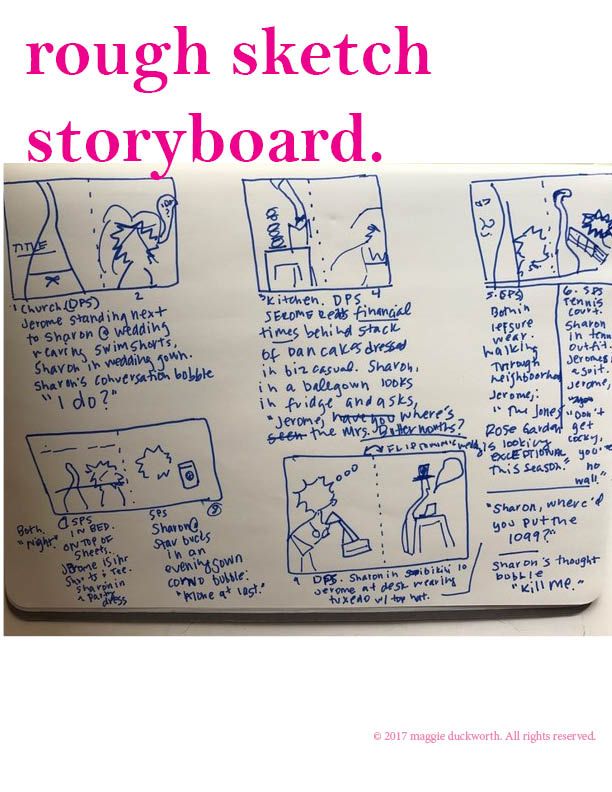 rough sketch
storyboard.
TITLE
I do?
2
1 Church (DPS)
Jerome standing next
to Sharon @ wedding
wearing swim shorts,
Sharon in wedding gown.
Sharon's conversation bobble
"I do?"
3 Kitchen. DPS 4
JEROME Reads financial
times behind stack
of pancakes dressed
in biz casual. Sharon,
in a ballgown looks
in fridge and asks,
"Jerome, have you where's
seen the Mrs. Butterworths?
5. SPS
Both in
leisure
wear.
walking
through
neighborhood
Jerome:
"The Jones'
ROSE Garden
is looking
EXCEPTIONAL
this season."
6. SPS
Tennis
court.
Sharon
in tennis
outfit.
Jerome in
a suit.
Jerome,
"Don't
get
cocky,
you're
no
wall."
8
Both
"Night"
SPS
IN BED.
ON TOP OF
sheets.
Jerome is in
Shorts + Tee.
Sharon in
a party
dress
SPS
Sharon @
Starbucks
in an
evening gown
convo bubble:
"Alone at last."
9 DPS. Sharon in bikini 10
Jerome at desk wearing
tuxedo w/ top hat.
"Sharon, where'd
you put the
1099?"
Sharon's thought
bobble
"Kill me."
© 2017 maggie duckworth. All rights reserved.